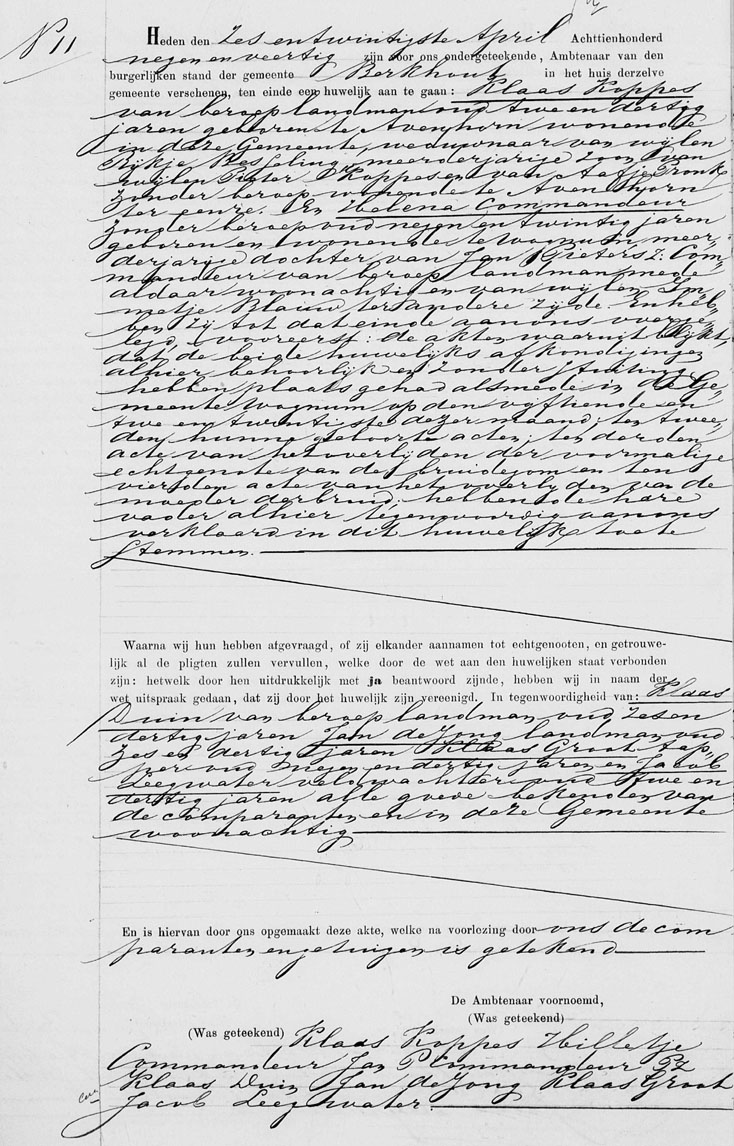 No 11
Heden den Zes en twintigste April Achttienhonderd
negen en veertig zijn voor ons ondergeteekende, Ambtenaar van den
burgerlijken stand der gemeente Berkhout in het huis derzelve
gemeente verschenen, ten einde een huwelijk aan te gaan: Klaas Koppes
van beroep landman oud twee en dertig
jaren geboren te Avenhorn wonende
in deze Gemeente, weduwnaar van wijlen
Rijkje Wesseling, meerderjarige zoon van
wijlen Pieter Koppes en van Aafje Pronk
zonder beroep wonende te Avenhorn
ter eenre. En Helena Commandeur
zonder beroep oud negen en twintig jaren
geboren en wonende te Wognum, meer-
derjarige dochter van Jan Pieters z: Com-
mandeur van beroep landman mede
aldaar woonachtig en van wijlen Im-
metje Blauw ter andere zijde. En heb-
ben zij tot dat einde aan ons overge-
legd, vooreerst: de akten waaruit blijkt,
dat de beide huwelijks afkondigingen
alhier behoorlijk en zonder stuiting
hebben plaats gehad alsmede in de Ge-
meente Wognum op den vijftiende en
twe en twintigste dezer maand; ten twee-
den hunne geboorte acten; ten derden
acte van het overlijden der voormalige
echtgenote van de bruidegom en ten
vierden acte van het overlijden van de
moeder der bruid; hebbende hare
vader alhier tegenwoordig aan ons
verklaard in dit huwelijk toe te
stemmen.
Waarna wij hun hebben afgevraagd, of zij elkander aannamen tot echtgenooten, en getrouwe-
lijk al de pligten zullen vervullen, welke door de wet aan den huwelijken staat verbonden
zijn: hetwelk door hen uitdrukkelijk met ja beantwoord zijnde, hebben wij in naam der
wet uitspraak gedaan, dat zij door het huwelijk zijn vereenigd. In tegenwoordigheid van: Klaas
Duin van beroep landman oud zes en
dertig jaren Jan de Jong landman oud
zes en dertig jaren Klaas Groot tap-
per oud negen en dertig jaren en Jacob
Leegwater veldwachter oud twe en
dertig jaren alle goede bekenden van
de comparanten en in deze Gemeente
woonachtig
En is hiervan door ons opgemaakt deze akte, welke na voorlezing door ons de com
paranten en getuigen is getekend
De Ambtenaar voornoemd,
(Was geteekend)
(Was geteekend) Klaas Koppes Hilletje
Commandeur Jan P Commandeur Pz
Klaas Duin Jan de Jong Klaas Groot
Jacob Leegwater